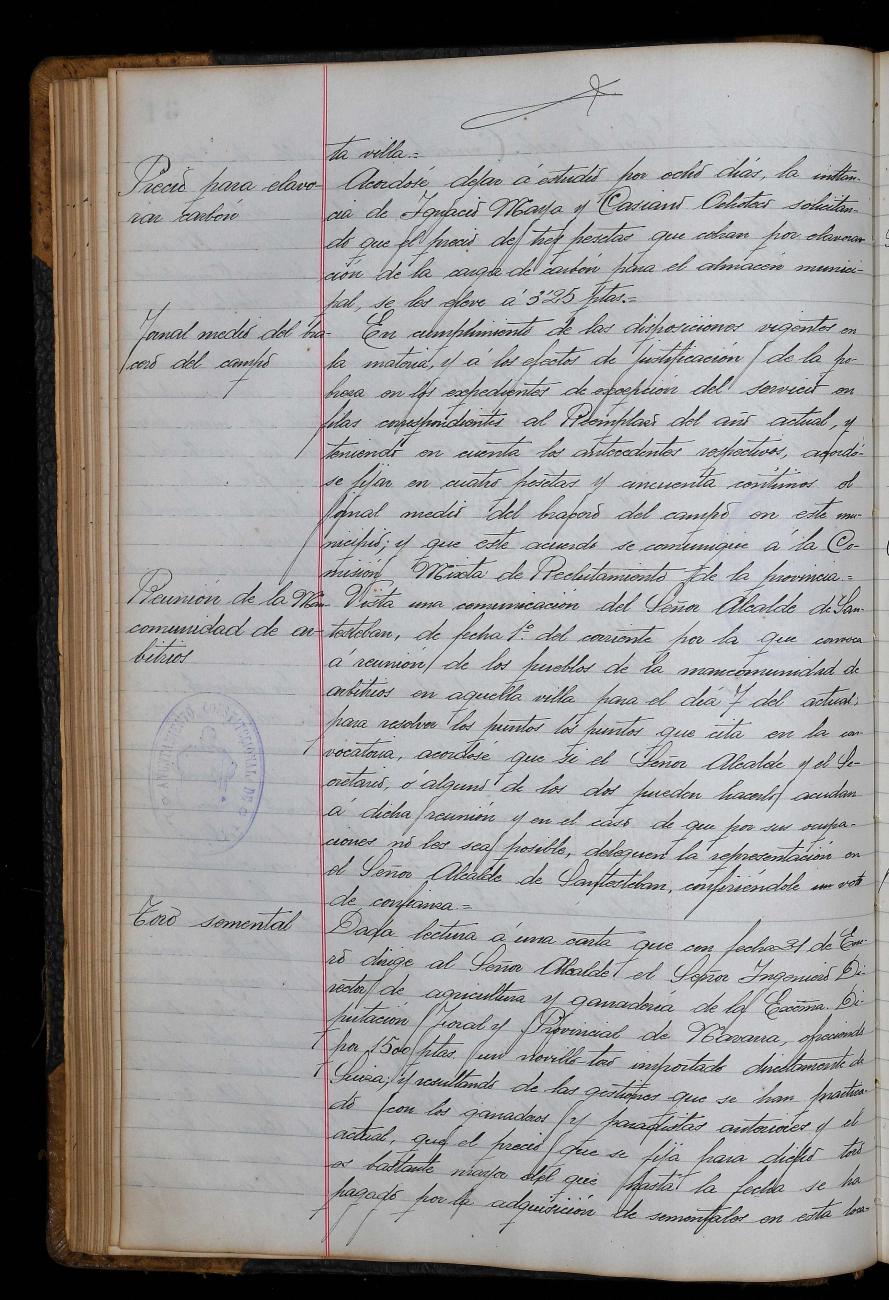 ta villa.=
Precio para elavo-
rar carbón
Acordosé dejar á estudio por ocho días, la instan-
cia de Ignacio Maya y Casiano Ochoteco solicitan-
do que el precio de tres pesetas que cobran por elavora-
ción de la carga de carbón para el almacén munici-
pal, se les eleve á 3'25 ptas.=
Jornal medio del bra-
cero del campo
En cumplimiento de las disposiciones vigentes en
la materia, y á los efectos de justificación de la po-
breza en los expedientes de excepción del servicio en
filas correspondientes al Reemplazo del año actual, y
teniendo en cuenta los antecedentes respectivos, acordó-
se fijar en cuatro pesetas y cincuenta céntimos el
jornal medio del bracero del campo en este mu-
nicipio; y que este acuerdo se comunique á la Co-
misión Mixta de Reclutamiento de la provincia.=
Reunión de la Man-
comunidad de ar-
bitrios
Vista una comunicación del Señor Alcalde de San-
testeban, de fecha 1º del corriente por la que convoca
á reunión de los pueblos de la mancomunidad de
arbitrios en aquella villa para el día 7 del actual,
para resolver los puntos los puntos que cita en la con-
vocatoria, acordose que si el Señor Alcalde y el Se-
cretario, ó alguno de los dos pueden hacerlo acudan
á dicha reunión y en el caso de que por sus ocupa-
ciones no les sea posible, deleguen la representación en
el Señor Alcalde de Santesteban, confiriéndole un voto
de confianza.=
AYUNTAMIENTO CONSTITUCIONAL DE
Toro semental
Dada lectura á una carta que con fecha 31 de Ene-
ro dirige al Señor Alcalde el Señor Ingeniero Di-
rector de agricultura y ganadería de la Excma. Di-
putación Foral y Provincial de Navarra, ofreciendo
por 1500 ptas. un novillo-toro importado directamente de
Suiza; y resultando de las gestiones que se han practica-
do con los ganaderos y paradistas anteriores y el
actual, que el precio que se fija para dicho toro
es bastante mayor del que hasta la fecha se ha
pagado por la adquisición de sementales en esta loca-